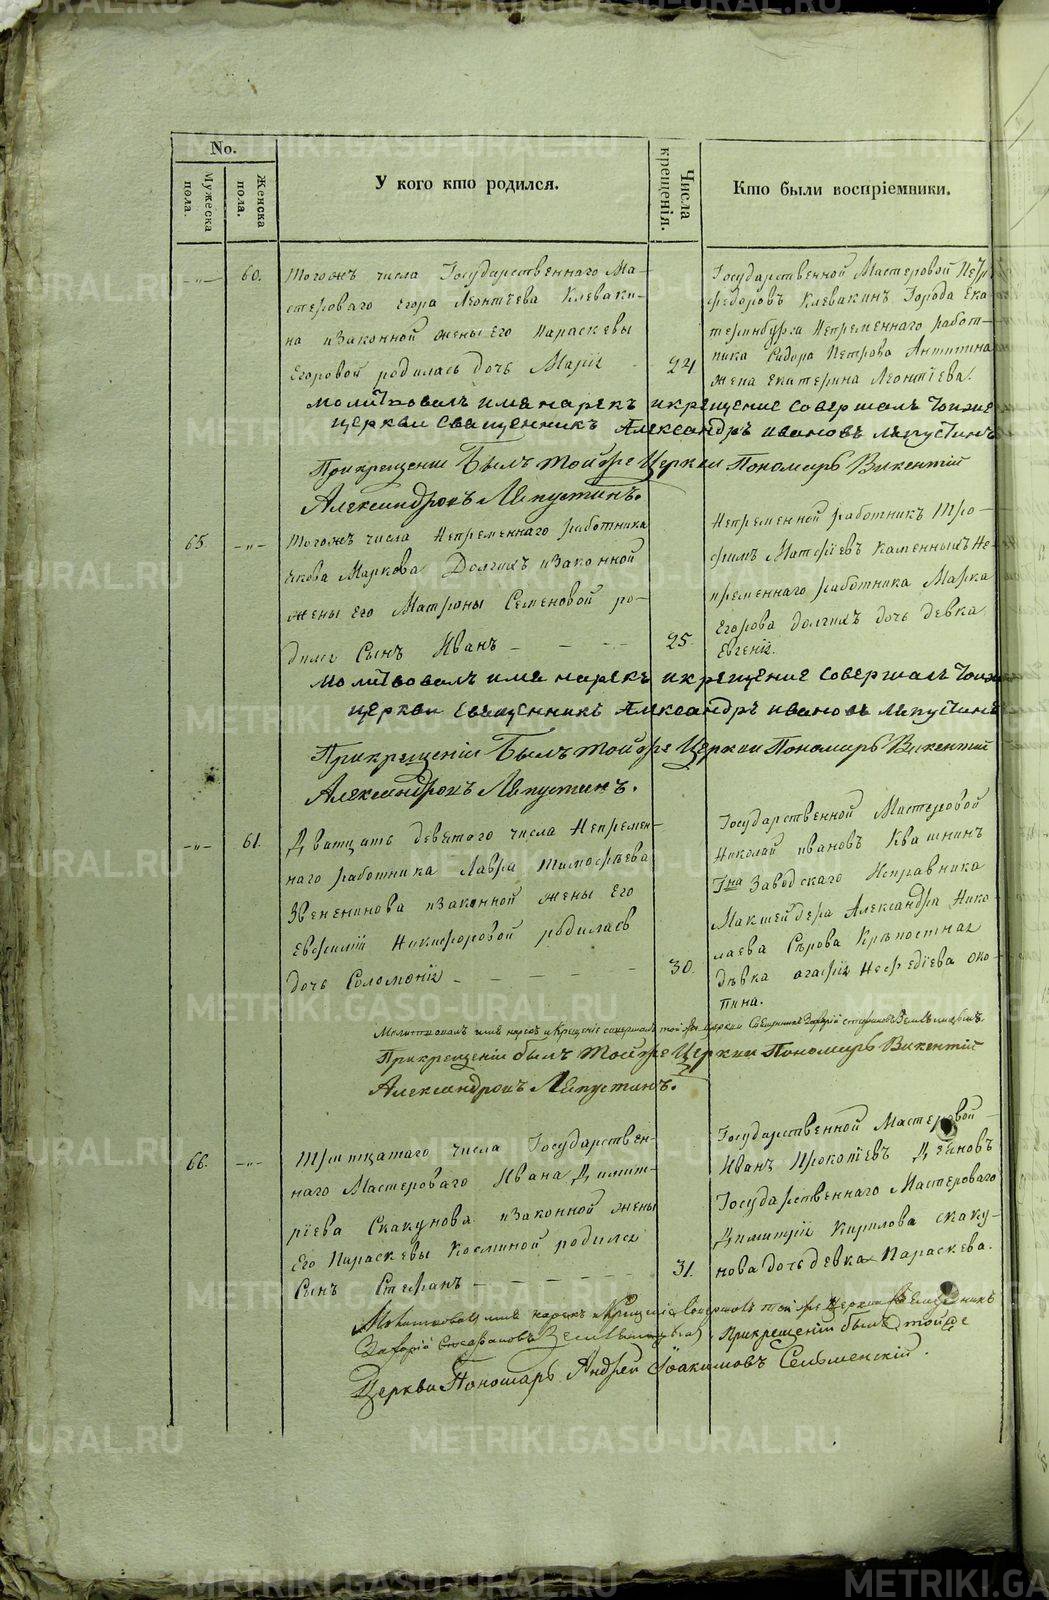 No.
Мужеска пола.
Женска пола.
У кого кто родился.
Числа крещенія.
Кто были воспріемники.
—„— 60.
Тогожъ числа Государственнаго Ма-
стероваго Егора Леонтіева Клеваки-
на изаконной жены Его Параскевы
Егоровой родилась дочь Маріѧ
24
Государственной Мастеровой Пётр
Федоровъ Клевакинъ Города Ека
теринбурга Непременнаго работ-
ника Петрова Антипина
жена Екатерина Леонтіева.
молитвовалъ имя нарекъ и крещение совершалъ тоиже
церкви священникъ Александръ ивановъ ляпустинъ
При крещеніи Былъ тойже Церкви Пономарь Викентій
Александровъ Ляпустинъ.
65. —„—
Тогожъ числа Непременнаго работника
Якова Маркова Долгихъ изаконной
жены Его Матроны Семеновой ро-
дилсѧ Сынъ Иванъ
25.
Непременной работникъ Тро-
фимъ Матфіевъ Каменныхъ Не-
пременнаго работника Марка
Егорова долгихъ дочь девка
Евгеніѧ.
молитвовалъ имя нарекъ и крещение совершалъ тоиже
церкви священникъ Александръ ивановъ ляпустинъ
При крещеніи Былъ тойже Церкви Пономарь Викентій
Александровъ Ляпустинъ.
—„— 61.
Дватцать девѧтого числа Непремен-
наго работника Лавра Тимофѣева
Звененинова изаконной жены Его
Евфиміи Никифоровой родилась
дочь Соломоніѧ
30.
Государственной Мастеровой
Николай ивановъ Квашнинъ
Гна Заводскаго Исправника
Александра Нико-
лаева Сѣрова Крѣпостнаѧ
дѣвка агафіѧ Нефедіева око-
пина.
Молитвовалъ имя нарекъ и Крещеніе совершалъ той же церкви Священникъ Захарій Стефановъ Земляницынъ.
При крещеніи былъ Тойже Церкви Пономарь Викентій
Александровъ Ляпустинъ.
66. —„—
Тритцатаго числа Государствен-
наго Мастероваго Ивана Димит-
ріева Скакунова изаконной жены
Его Параскевы Косминой родилсѧ
Сынъ Стефанъ
31.
Государственной Мастеровой
Иванъ Прокопіевъ
Государственнаго Мастероваго
Димитріѧ Кирилова скаку-
нова дочь девка Параскева.
Молитвовалъ имя нарекъ и Крещеніе Совершалъ той же Церкви Священникъ
Захарій Стефановъ Земляницынъ, При крещеніи былъ тойже
Церкви Пономарь Андрей Іоакимовъ Сельменскій.
METRIKI.GASO-URAL.RU